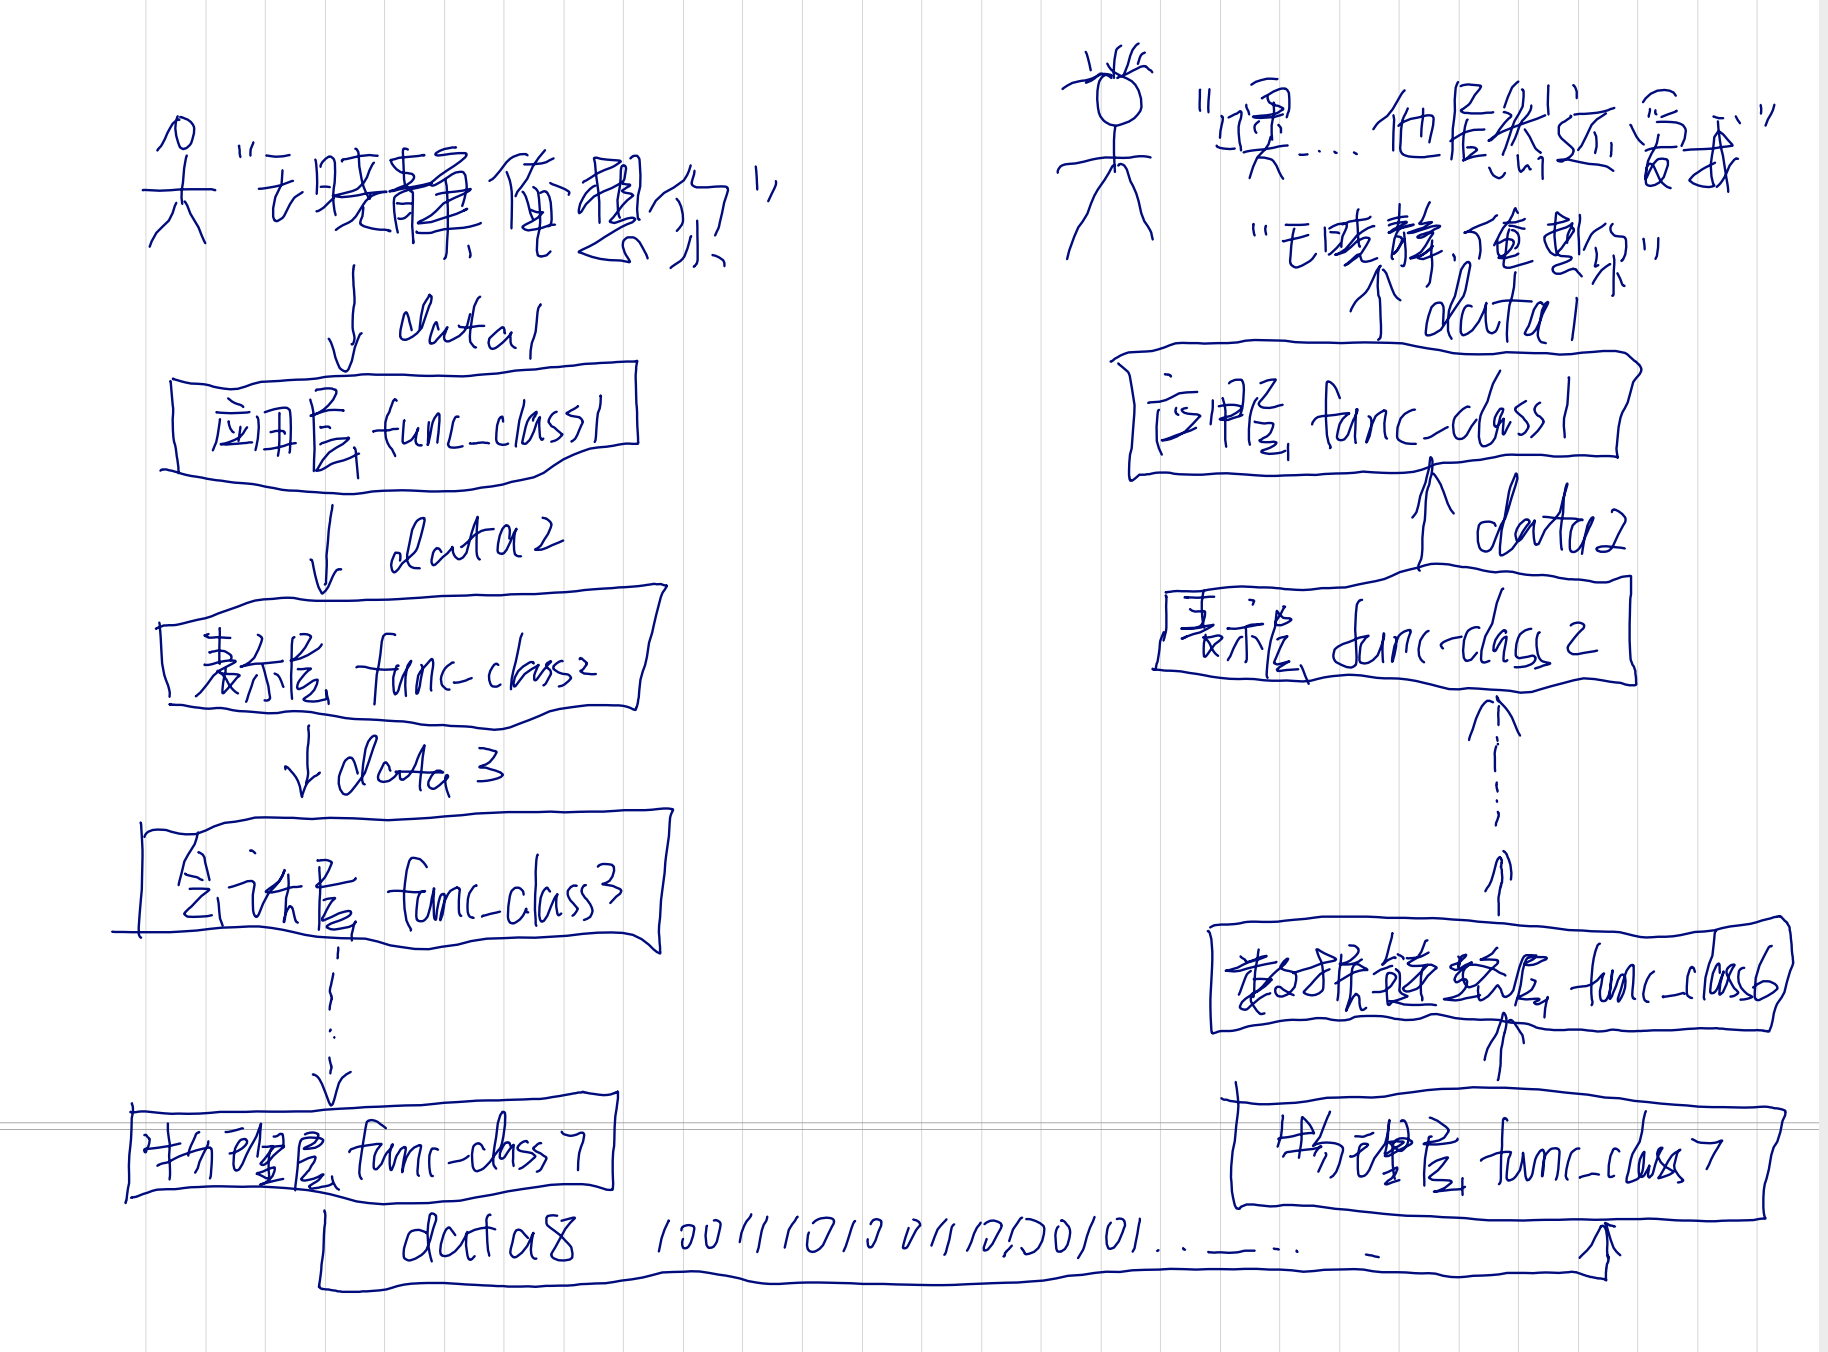 "王晓静,俺想你"
data1
应用层 func_class1
data2
表示层 func-class2
data 3
会话层 func_class3
物理层 func-class7
data8 1001111010011010
"噢....他居然还爱我"
"王晓静,俺想你"
data1
应用层 func_class1
data2
表示层 func-class2
数据链路层 func_class6
物理层 func_class7